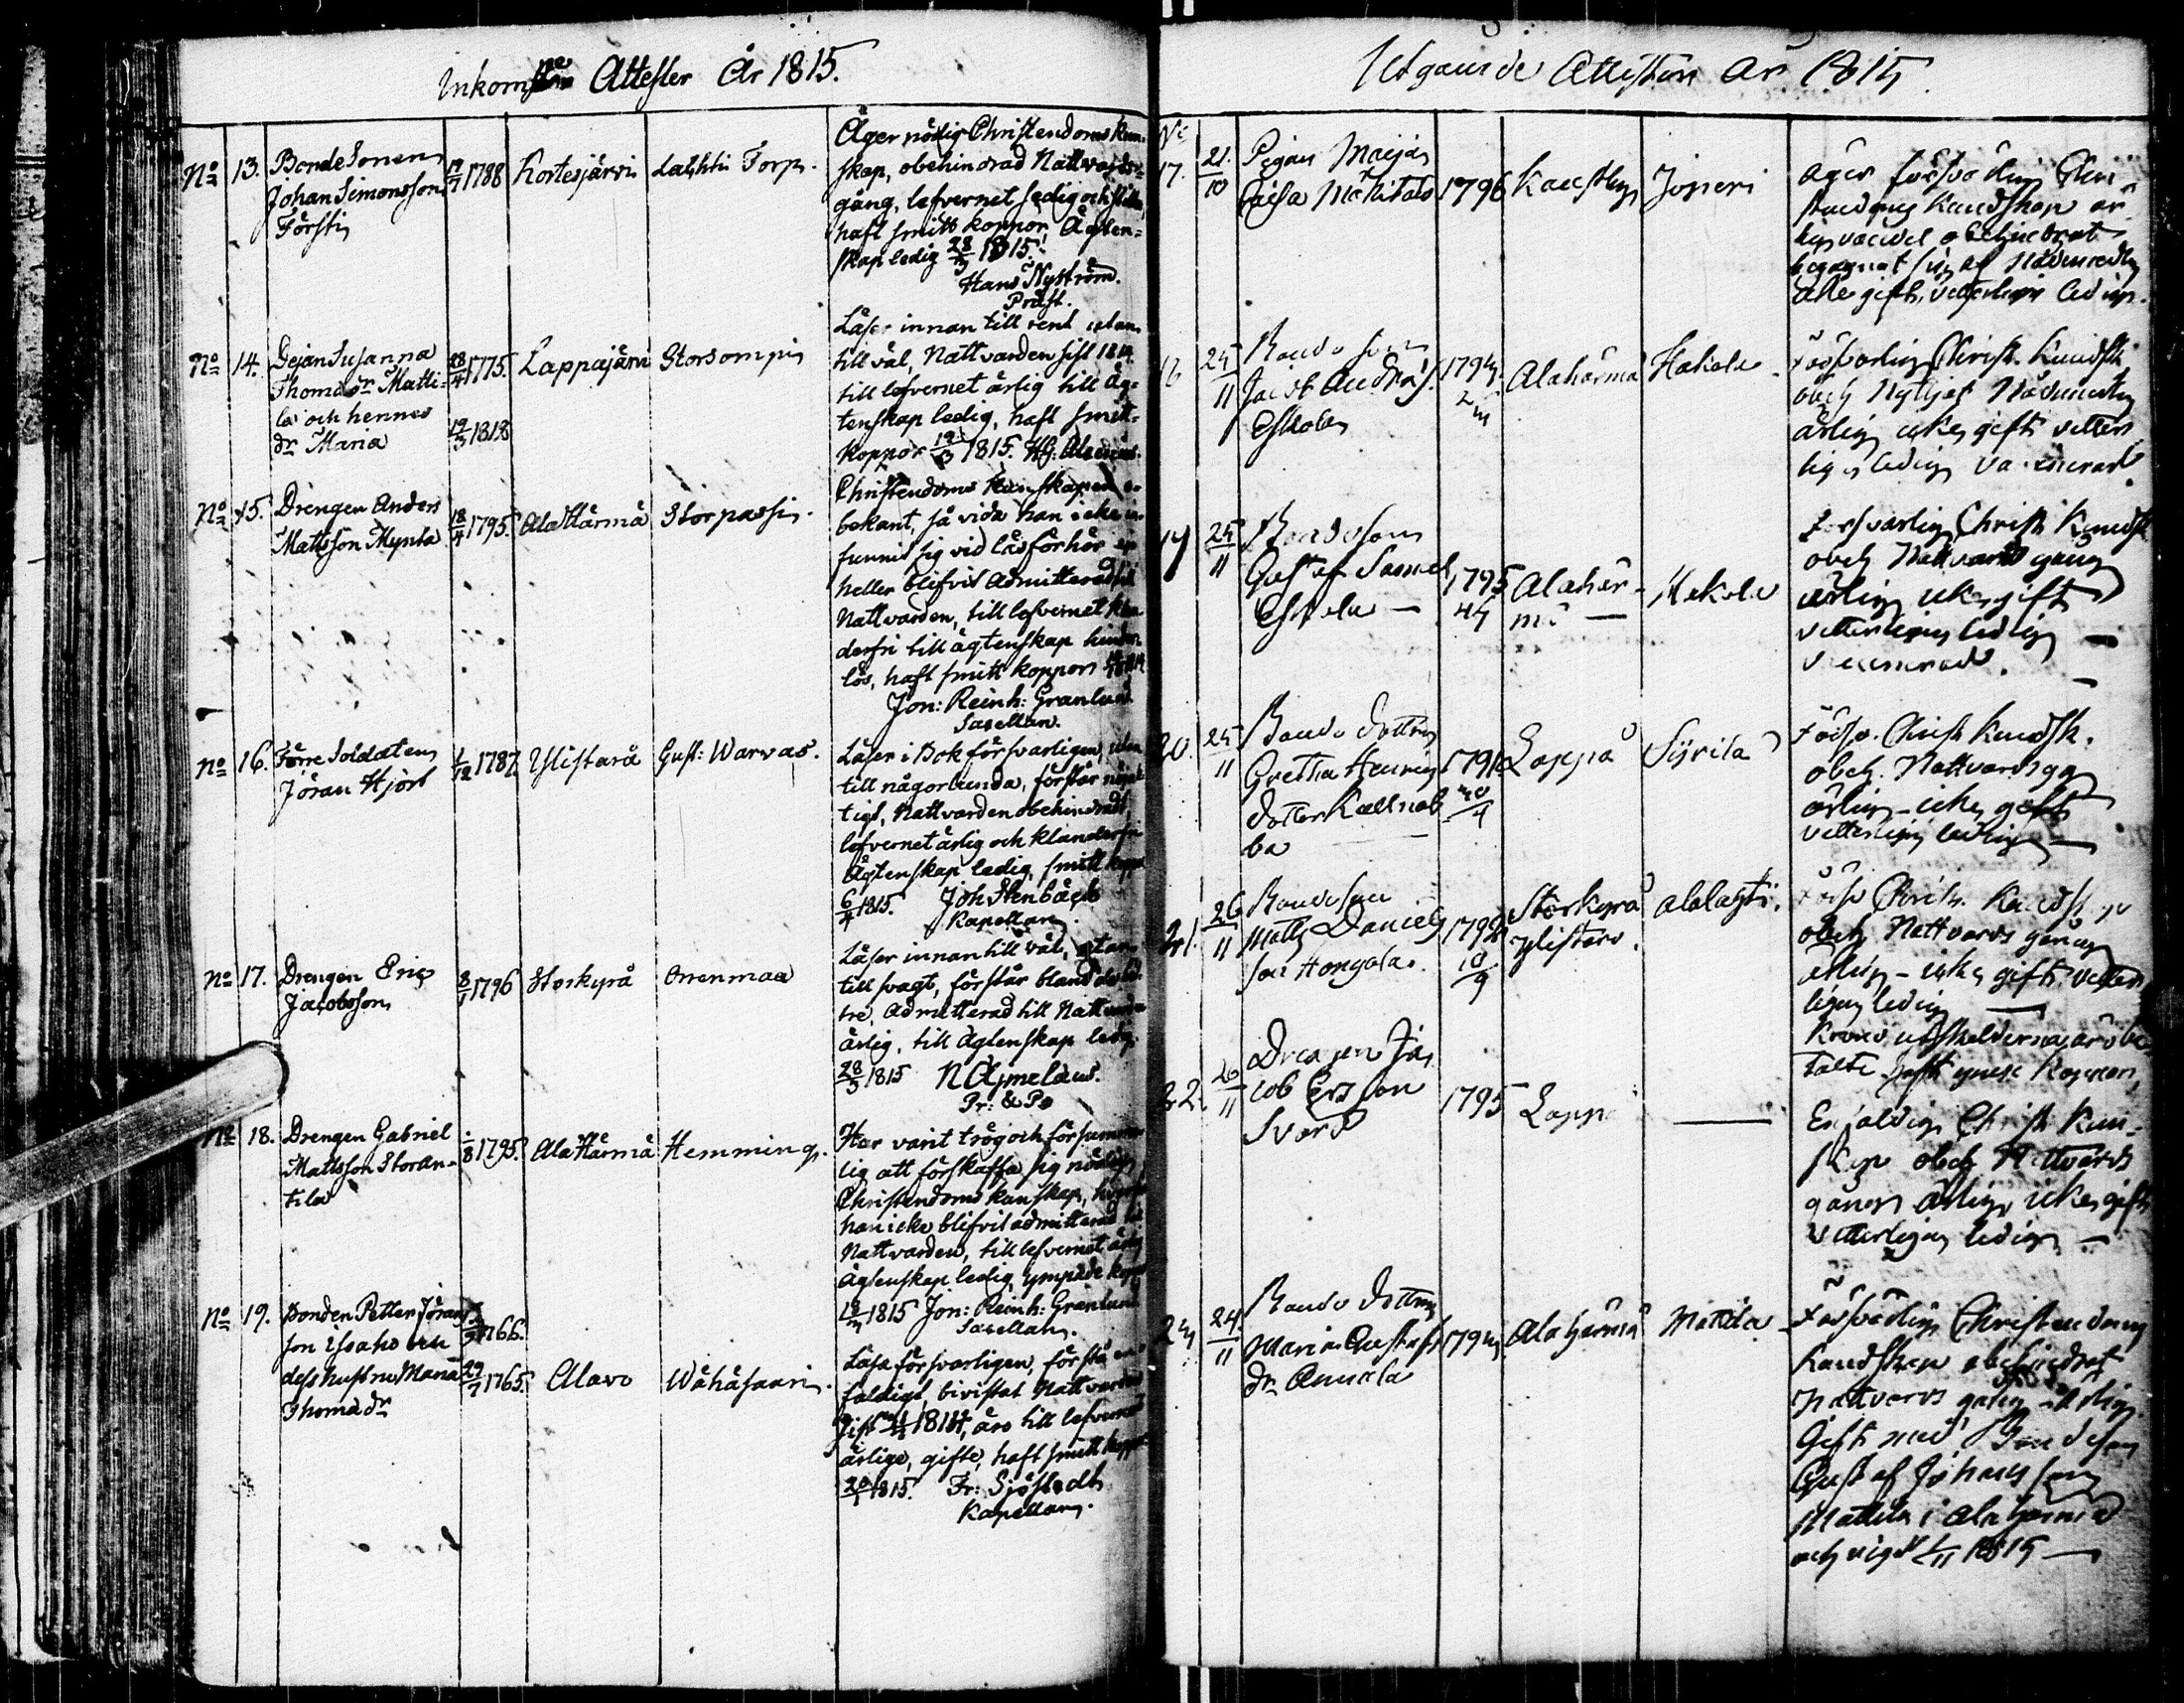 Inkomne Attester År 1815.
No 13. Bondesonen
Johan Simonsson
Försti
19/7 1788 Kortesjärvi Lachti Torp.
Äger nödig Christendoms kun-
skap, obehindrad Nattvards-
gång, lefvernet sedig och stilla,
haft smitt koppor, Ägten-
skap ledig 28/3 1815.
Hans Nyström.
Präst.
No 14. Pejan Susanna
Thomasdr Matti-
la och hennes
dr Maria
28/4 1775.
19/3 1818
Lappajärvi Storsompi
Läser innan till rent utan
till väl, Nattvarden sist 1814.
till lefvernet ärlig till äg-
tenskap ledig, haft smitt-
koppor 19/3 1815.
No 15. Drengen Anders
Mattsson Mynta
18/4 1795. Ala Härmä Storpassi.
Christendoms kunskapen
bekant, så vida han icke in-
funnit sig vid läsförhör
heller blifvit Admitterad till
Nattvarden, till lefvernet klan-
derfri till ägtenskap hinder-
lös, haft smitt koppor
Jon: Reinh: Granlund
Sacellan.
No 16. Förre Soldaten
Jöran Hjort
1/12 1787 Ylistarå Gust: Warvas.
Läser i Bok försvarligen, utan
till någorlunda, förstår något
tigt, Nattvarden obehindradt,
lefvernet ärlig och klanderfri
Ägtenskap ledig, smitt koppor
6/4 1815. Joh Stenbäck
Kapellan.
No 17. Drengen Eric
Jacobsson
8/1 1796 Storkyrå Orrenmaa
Läser innan till väl, utan
till svagt, förstår bland de bät-
tre, Admitterad till Nattvarden
ärlig, till Ägtenskap ledig.
28/3 1815 N Aymelæus.
Pr: & Pr
No 18. Drengen Gabriel
Mattsson Storan-
tila
8 1795. Ala Härmä Hemming.
Har varit trög och försummer
lig att förskaffa sig nödig
Christendoms kunskap, hvarföre
han icke blifvit admitterad till
Nattvarden, till lefvernet ärlig
Ägtenskap ledig, ympade koppor
1815 Jon: Reinh: Granlund
Sacellan.
No 19. Bonden Petter Jöran-
son Isaho och
dess hustru Maria
Thomædr
1766.
29/7 1765. Alavo Wähäsaari.
Läsa försvarligen, förstå en-
faldigt, bivistat Nattvarden
sist 1814, äro till lefvernet
ärlige, gifte, haft smitt koppor
20/4 1815. Fr: Sjöstedt
Kapellan.
Utgående Attester År 1815
No
17. 21/10 Pigan Maija
Caisa Mäkitalo
1796 Kaustby Jyperi
Äger försvarlig Chri-
stendoms Kundskap är-
lig vandel obehindrat
begagnat sig af Nådmedlen
icke gift, vetterligen ledig.
18 25/11 Bonde Son
Jacob Andrs
Eskola
1794 Alahärmä Hakola
Försvarlig Christ. Kundsk:
obeh Nyttjat Nådmedlen
ärlig icke gift vetter-
ligen ledig vaccinerad
19 25/11 Bondeson
Gustaf Samuel
Eskola —
1795 Alahär-
mä — Hakola
Försvarlig Christ Kundsk
obeh Nattvards gång
ärlig icke gift
vetterligen ledig —
vaccinerad.
20. 25/11 Bonde dottren
Gretha Henrics
dotter Kallnab
ba
1791 Lappo Sÿrilä
Försv. Christ Kundsk.
obeh. Nattvardsgg
ärlig - icke gift
vetterligen ledig —
21. 26/11 Bondeson
Matts Daniels
son Hongola.
1792
10/9
Storkyrå
Ylistaro. Alalahti.
Försv Christ. Kundskap
obeh Nattvards gång
ärlig - icke gift. vetter
ligen ledig —
Krono utskylderna är be
talte. haft ymp. Koppor
22. 26/11 Drengen Ja
cob Ersson
Svard
1795 Lappo —
Enfaldig Christ Kun-
skap obeh Nattvards
gång ärlig, icke gift
Vetterligen ledig —
23 24/11 Bonde dottren
Maria Gustafs
dr Annala
1794 Alahärmä Mattila
Försvarlig Christendoms
Kundskap obehindrat
Nattvards gång ärlig
Gift med Bondeson
Gustaf Johansson
Mattila i Alahärmä
och vigd 1/11 1815 —